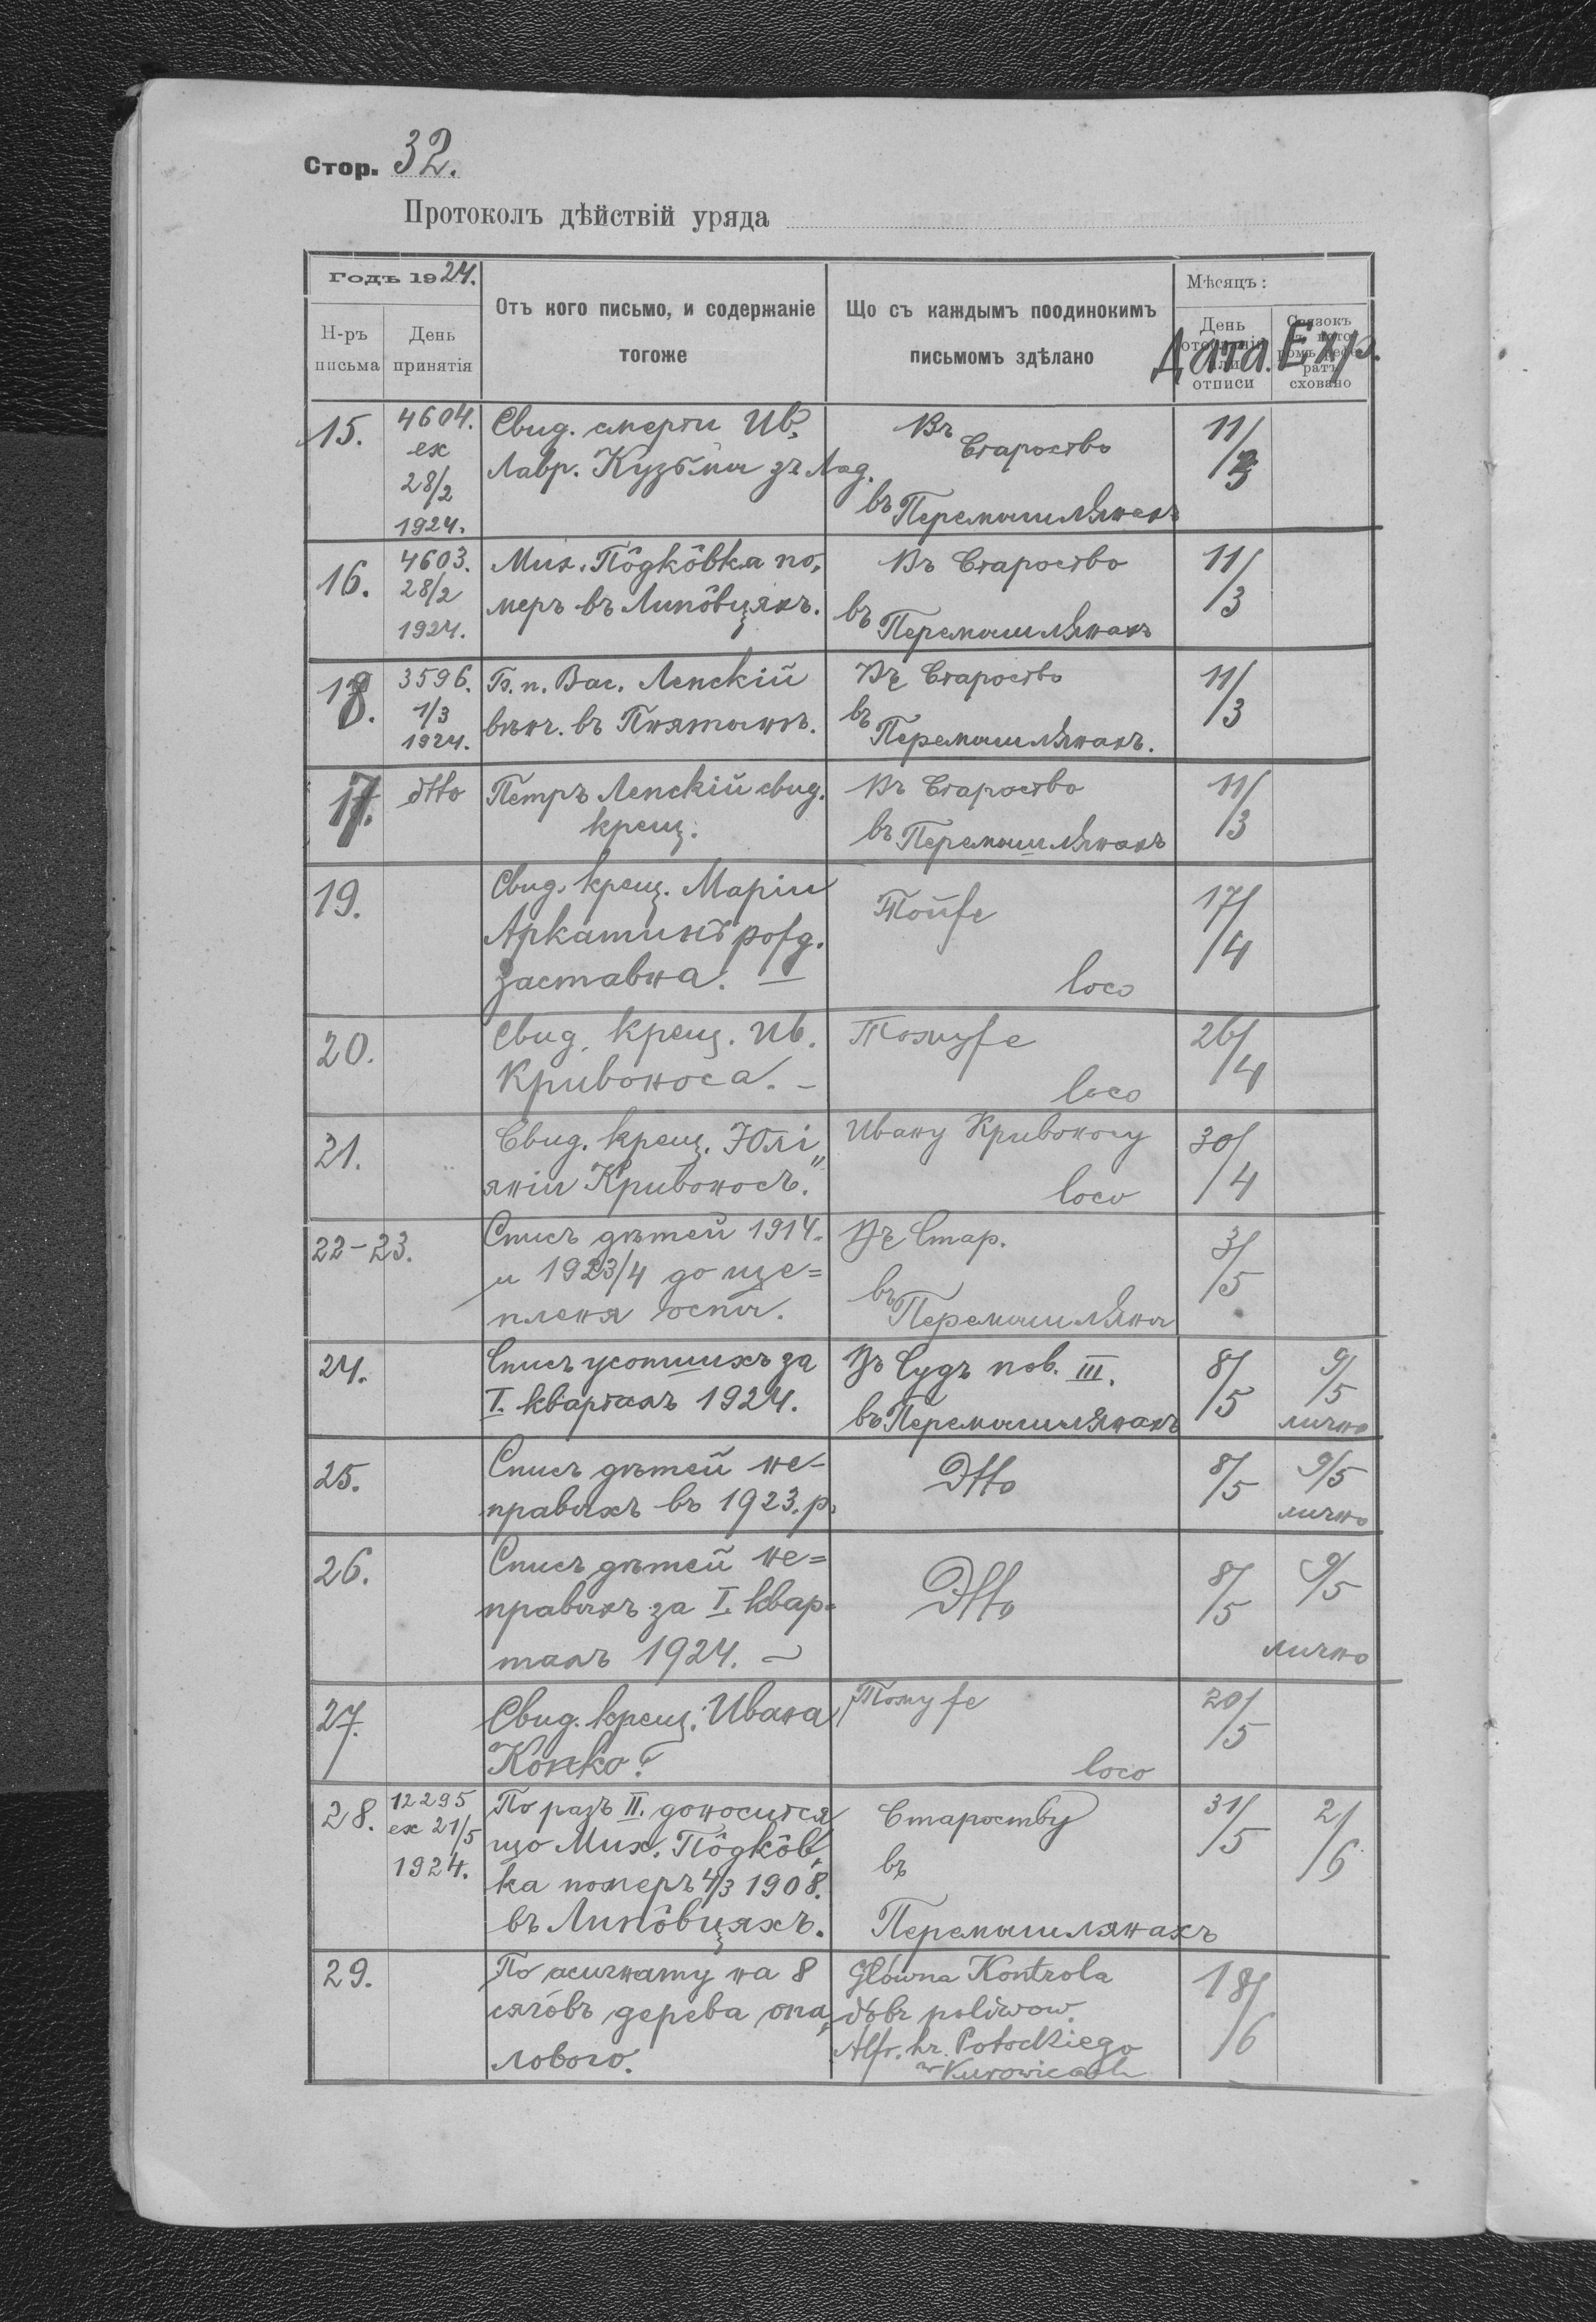 Стор. 32.
Протоколъ дѣйствій уряда
Годъ 1924.
Н-ръ письма
День принятія
Отъ кого письмо, и содержаніе
тогоже
Що съ каждымъ поодинокимъ
письмомъ здѣлано
Мѣсяцъ:
День
отписи
Дата.
Связокъ
сховано
Exp.
15.
4604.
ex
28/2
1924.
Свид. смерти Ив.
Лавр. Кузьмы зъ Лад.
Въ Староство
въ Перемышлянахъ
11/3
16.
4603.
28/2
1924.
Мих. Пôдкôвка по„
меръ въ Липôвцяхъ.
Въ Староство
въ Перемышлянахъ
11/3
18.
3596.
1/3
1924.
Б. п. Вас. Лепскій
вѣнч. въ Пнятынѣ.
Въ Староство
въ
Перемышлянахъ.
11/3
17.
dtto
Петръ Лепскій свид.
крещ.
Въ Староство
въ Перемышлянахъ
11/3
19.
Свид. крещ. Маріи
рожд.
Заставна. —
Тойже
loco
17/4
20.
Свид. крещ. Ив.
Кривоноса. –
Томуже
loco
26/4
21.
Свид. крещ. Юлі„
яніи Кривоносъ.
Ивану Кривоносу
loco
30/4
22-23.
Списъ дѣтей 1914.
и 1923/4 до ще=
пленя оспы.
Въ Стар.
въ Перемышляны
3/5
24.
Списъ усопшихъ за
I. кварталъ 1924.
Въ Судъ пов. III.
въ Перемышлянахъ
8/5
9/5
лично
25.
Списъ дѣтей не-
правыхъ въ 1923. р.
Dtto
8/5
9/5
лично
26.
Списъ дѣтей не=
правыхъ за I. квар=
талъ 1924. –
Dtto
8/5
9/5
лично
27.
Свид. крещ. Ивана
Томуже
loco
20/5
28.
12295
ex 21/5
1924.
По разъ II. доносится
що Мих. Пôдкôв„
ка померъ 4/3 1908.
въ Липôвцяхъ.
Староству
въ
Перемышлянахъ
31/5
2/6
29.
По асигнату на 8
сягôвъ дерева опа„
лового.
Główna Kontrola
dóbr
Alfr. hr. Potockiego
w Kurowicach
18/6